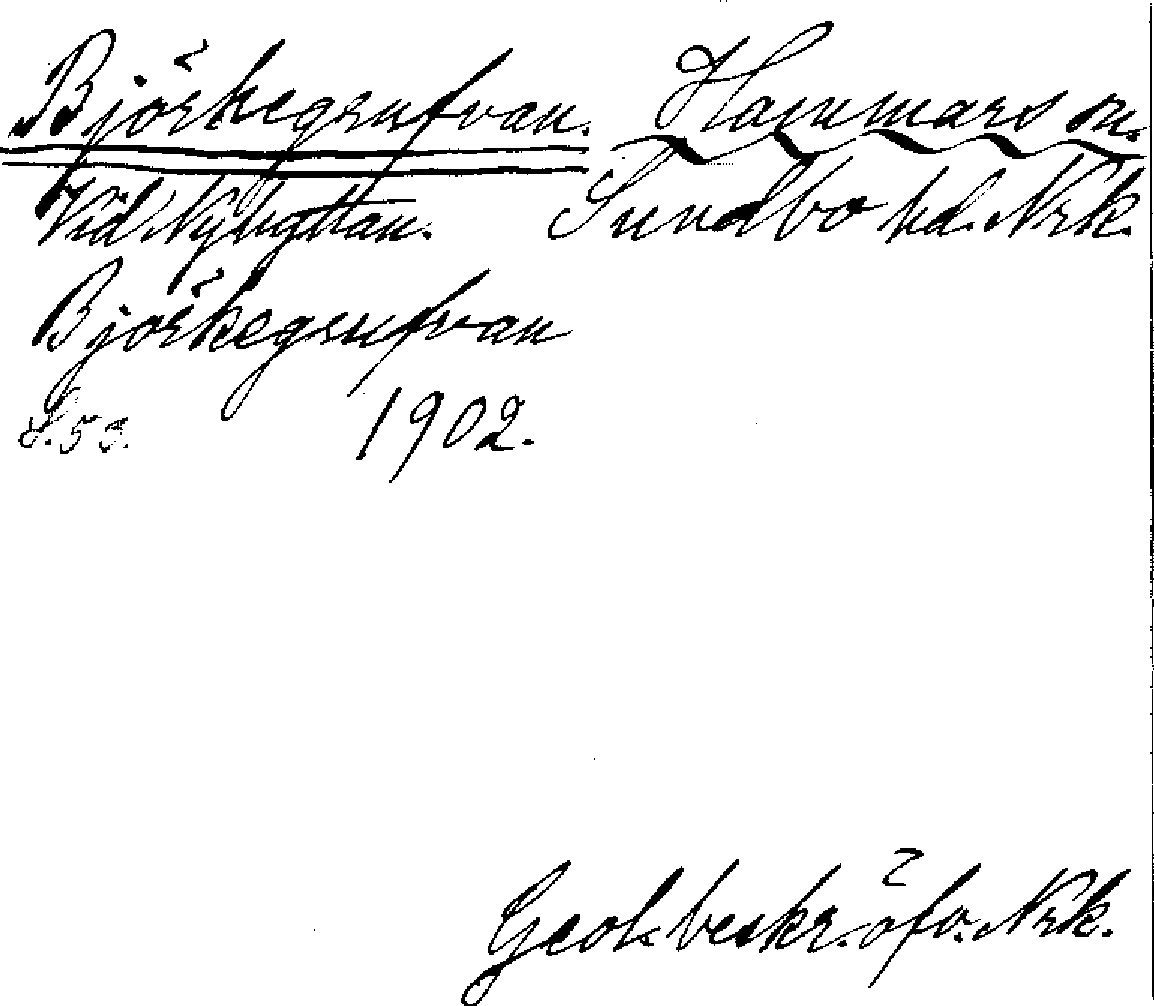 Björkegrufvan. Hammars sn.
Vid Nyhyttan. Sundbo hd. Nrk.
Björkegrufvan
S. 53. 1902.
Geol. beskr. öfv. Nrk.